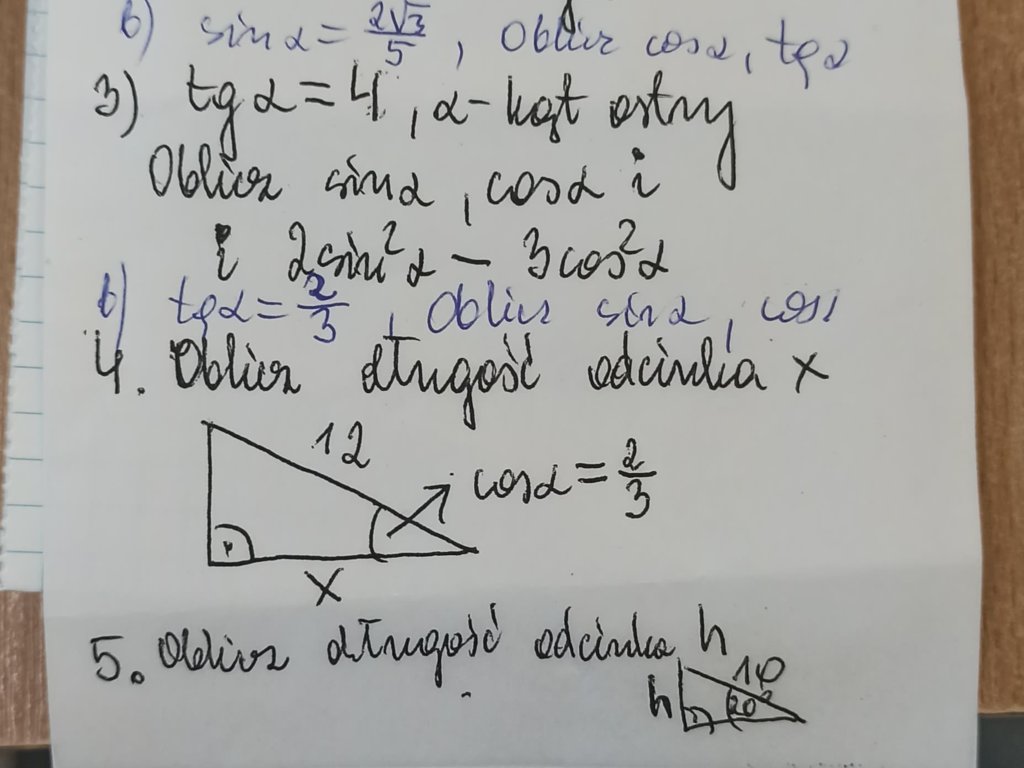 b) sin α = 2√3/5, Oblicz cos α, tg α
3) tg α = 4, α - kąt ostry
Oblicz sin α, cos α i
i 2sin²α - 3cos²α
b) tg α = 2/3, Oblicz sin α, cos
4. Oblicz długość odcinka x
12
cos α = 2/3
x
5. Oblicz długość odcinka h
10
h 20°